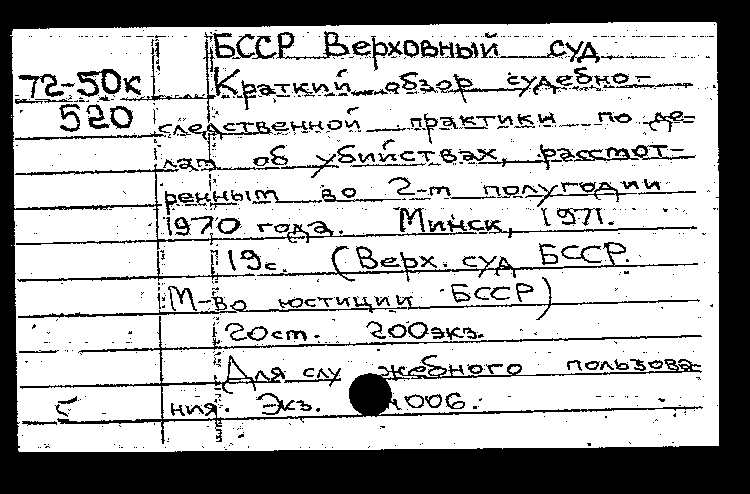 БССР Верховный суд
72-50к Краткий обзор судебно-
520 следственной практики по де-
лам об убийствах, рассмот-
ренным во 2-м полугодии
1970 года. Минск, 1971.
19с. (Верх. суд БССР.
М-во юстиции БССР)
20см. 200экз.
Для служебного пользова-
ния. Экз. 006.